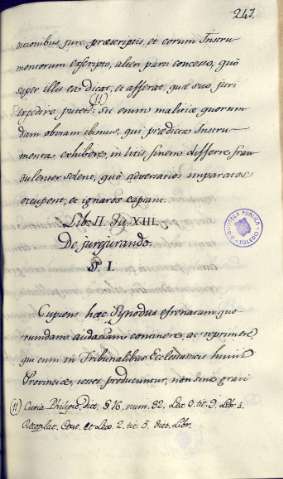 247.
tionibus jure praescriptis, et eorum Instru-
mentorum exscripto, alteri parti concesso, quô
super illis ea dicat, et afferat, quae suo juri
expedire putet. (1) Sic enim malitiae quorum-
dam obviam ibimus, qui praedicta Instru-
menta exhibere, in litis finem differre frau-
dulenter solent, quô adversarios imparatos
occupent, et ignaros capiant.
Lib. II. Tit. XIII.
De jurejurando.
§. I.
Cupiens haec Synodus efrenatam quo-
rumdam audaciam continere, ac reprimere,
qui cum in Tribunalibus Ecclesiasticis hujus
Provinciae, testes producuntur, non sine gravi
(1) Curia Philip. dict. § 16. num. 32. Lex 9. tit. 9. Libr. 4.
Recopilat. et Lex 2. tit. 5. Libr.
BIBLIOTECA PUBLICA TOLEDO